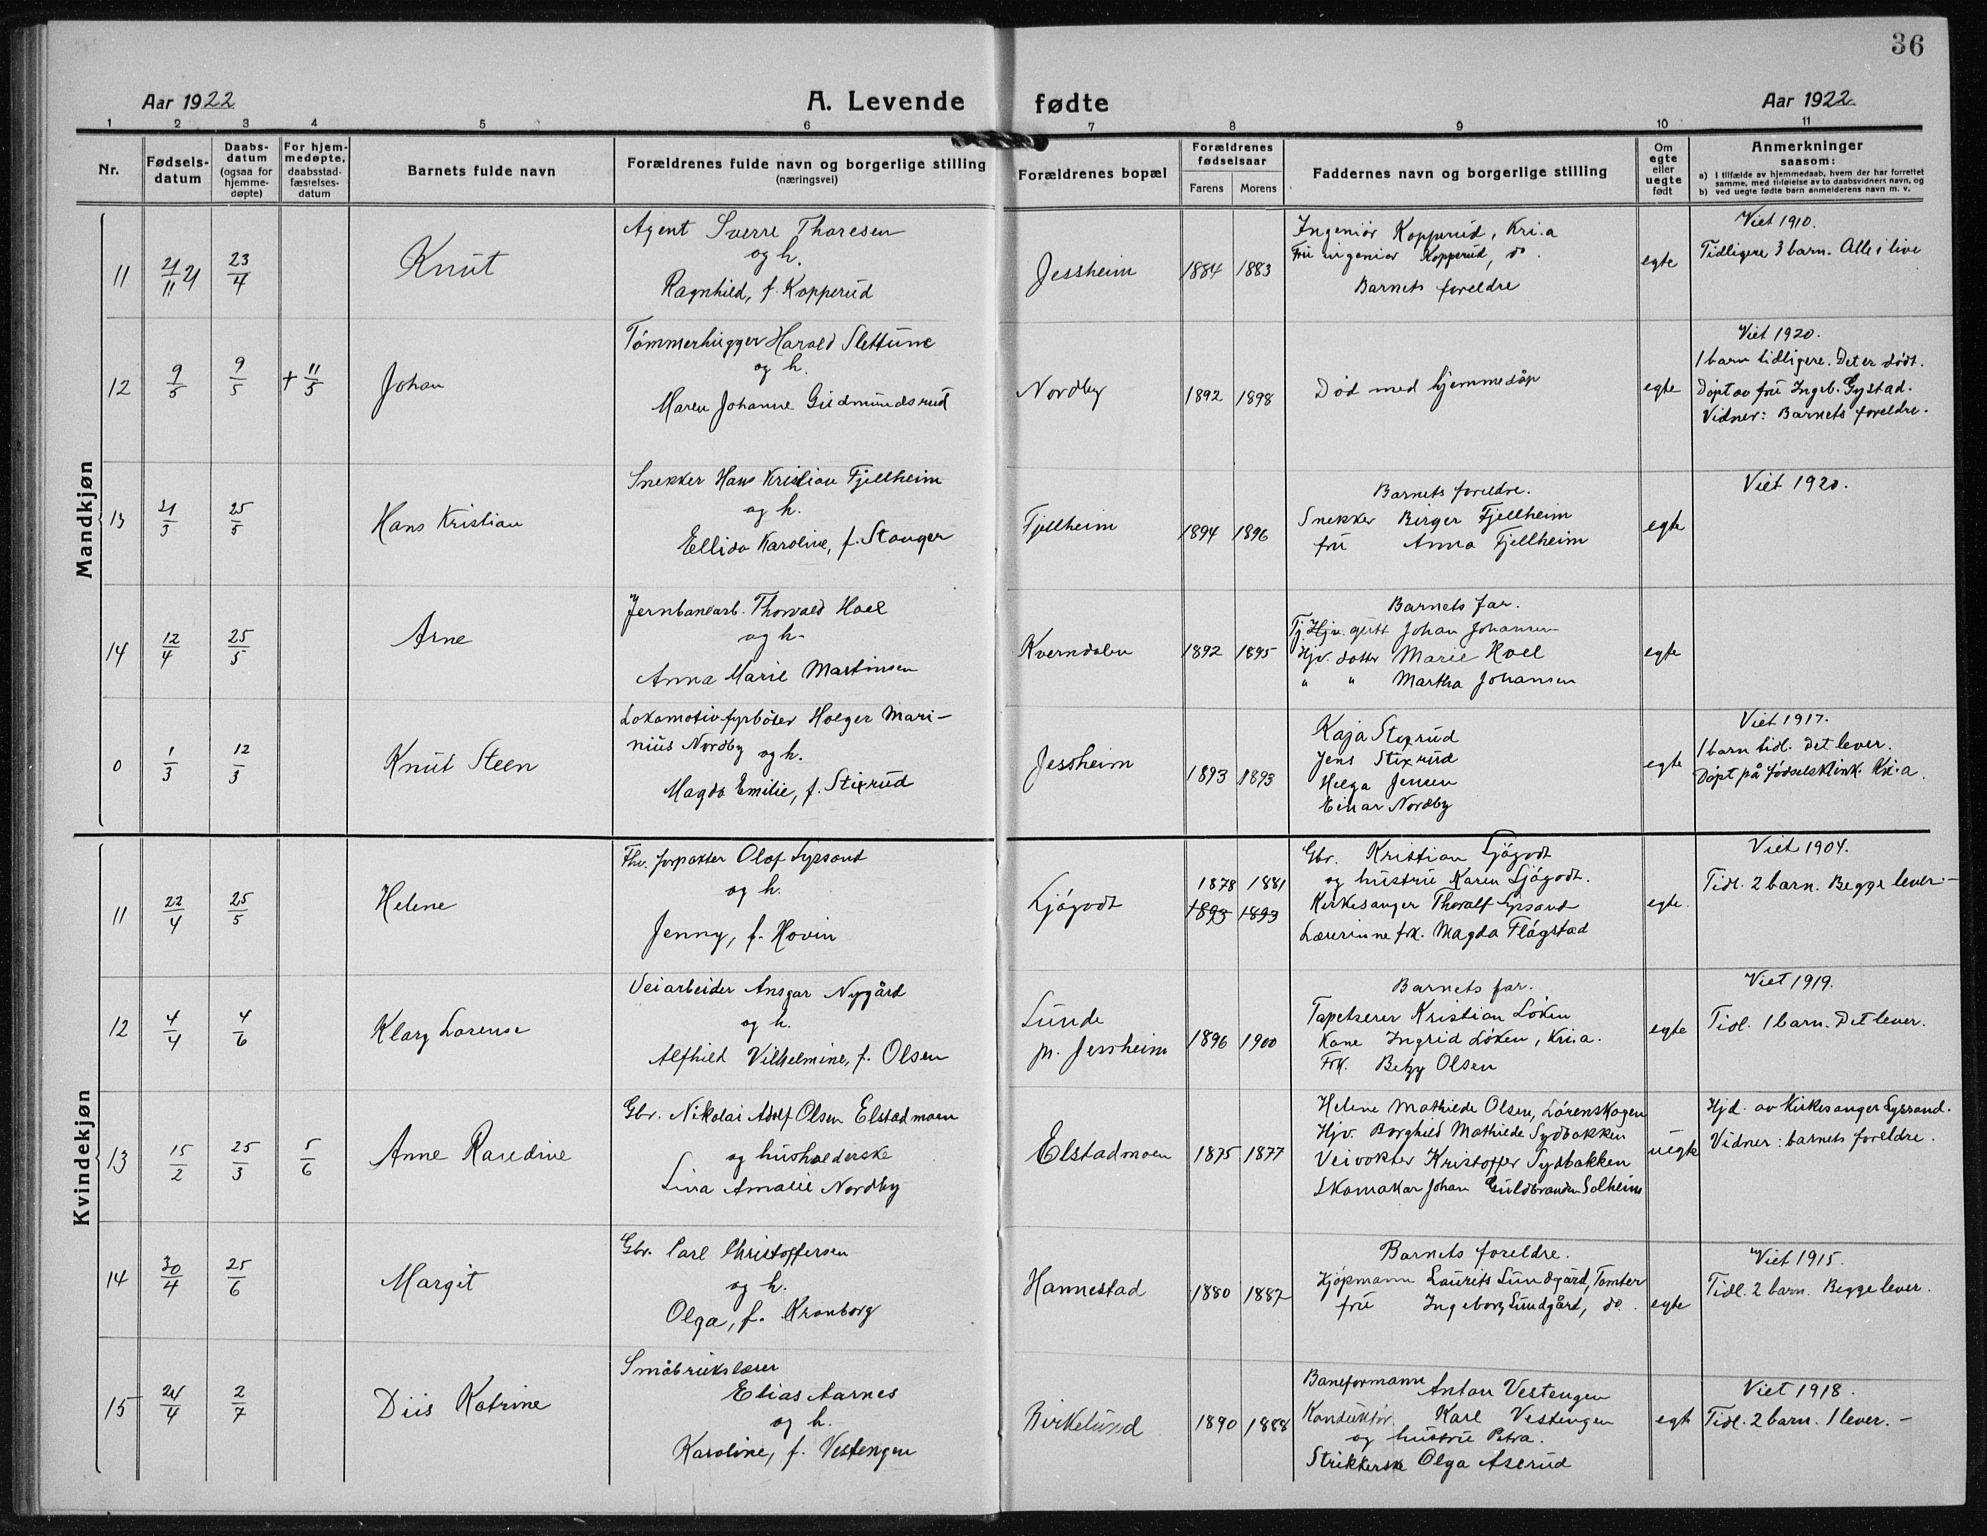 36
Aar 1922
A. Levende fødte
Aar 1922
1 2 3 4 5 6 7 8 9 10 11
Nr.
Fødsels-
datum
Daabs-
datum
(ogsaa for
hjemme-
døpte)
For hjem-
medøpte,
daabsstad-
fæstelses-
datum
Barnets fulde navn
Forældrenes fulde navn og borgerlige stilling
(næringsvei)
Forældrenes bopæl
Forældrenes
fødselsaar
Farens Morens
Faddernes navn og borgerlige stilling
Om
egte
eller
uegte
født
Anmerkninger
saasom:
a) i tilfælde av hjemmedaab, hvem der har forrettet
samme, med tilføielse av to daabsvidners navn, og
b) ved uegte fødte barn anmelderens navn m. v.
Mandkjøn
11 21/11 21 23/4 Knut
Agent Sverre Thoresen
og h.
Ragnhild, f. Kopperud
Jessheim 1884 1883
Ingeniør Kopperud, Kri.a
Fru ingeniør Kopperud, do.
Barnets foreldre
egte
Viet 1910.
Tidligere 3 barn. Alle i live
12 9/5 9/5 + 11/5 Johan
Tømmerhugger Harald Slettune
og h.
Maren Johanne Gudmundsrud
Nordby 1892 1898
Død med hjemmedåp
egte
Viet 1920.
1 barn tidligere. Det er dødt.
Døpt av fru Ingeb. Gystad.
Vidner: Barnets foreldre.
13 21/3 25/5 Hans Kristian
Snekker Hans Kristian Fjellheim
og h.
Ellida Karoline, f. Stanger
Fjellheim 1894 1896
Barnets foreldre.
Snekker Birger Fjellheim
fru Anna Fjellheim
egte
Viet 1920.
14 12/4 25/5 Arne
Jernbanearb. Thorvald Hoel
og h.
Anna Marie Martinsen
Kverndalen 1892 1895
Barnets far.
Tj. Hjv. gutt Johan Johansen
Hjv. datter Marie Hoel
" " Martha Johansen
egte
0 1/3 12/3 Knut Steen
Lokomotivfyrbøter Holger Mari-
nius Nordby og h.
Magda Emilie, f. Stixrud
Jessheim 1893 1893
Kaja Stixrud
Jens Stixrud
Helga Jensen
Einar Nordby
egte
Viet 1917.
1 barn tidl. Det lever.
Døpt på Fødselsklink. Kri.a.
Kvindekjøn
11 22/4 25/5 Helene
Fhv. forpakter Olaf Lyssand
og h.
Jenny, f. Hovin
Ljøgodt 1878 1881
1893 1893
Gbr. Kristian Ljøgodt
og hustru Karen Ljøgodt.
Kirkesanger Thoralf Lyssand
Lærerinne frk. Magda Flågstad
egte.
Viet 1904.
Tidl. 2 barn. Begge lever.-
12 4/4 4/6 Klary Lorense
Veiarbeider Ansgar Nygård
og h.
Alfhild Vilhelmine, f. Olsen
Lunde
pr. Jessheim 1896 1900
Barnets far.
Tapetserer Kristian Løken
Kone Ingrid Løken, Kri.a.
Frk. Betzy Olsen
egte
Viet 1919.
Tidl. 1 barn. Det lever.
13 15/2 25/3 5/6 Anne Ragdine
Gbr. Nikolai Adolf Olsen Elstadmoen
og husholderske
Lina Amalie Nordby
Elstadmoen 1875 1877
Helene Mathilde Olsen, Lørenskogen
Hjv. Borghild Mathilde Sydbakken
Veivokter Kristoffer Sydbakken
Skomaker Johan Guldbrandsen Solheim
uegte
Hjd. av Kirkesanger Lyssand.
Vidner: barnets foreldre.
14 30/4 25/6 Margit
Gbr. Carl Christoffersen
og h.
Olga, f. Kronborg
Hannestad 1880 1887
Barnets foreldre.
Kjøpmann Laurits Lundgård, Tomter
fru Ingeborg Lundgård, do.
egte
Viet 1915.
Tidl. 2 barn. Begge lever.
15 24/4 2/7 Diis Katrine
Småbrukslærer
Elias Aarnes
og h.
Karoline, f. Vestengen
Birkelund 1890 1888
Baneformann Anton Vestengen
Konduktør Karl Vestengen
og hustru Petra.
Strikkerske Olga Aserud
egt
Viet 1918.
Tidl. 2 barn. 1 lever.-